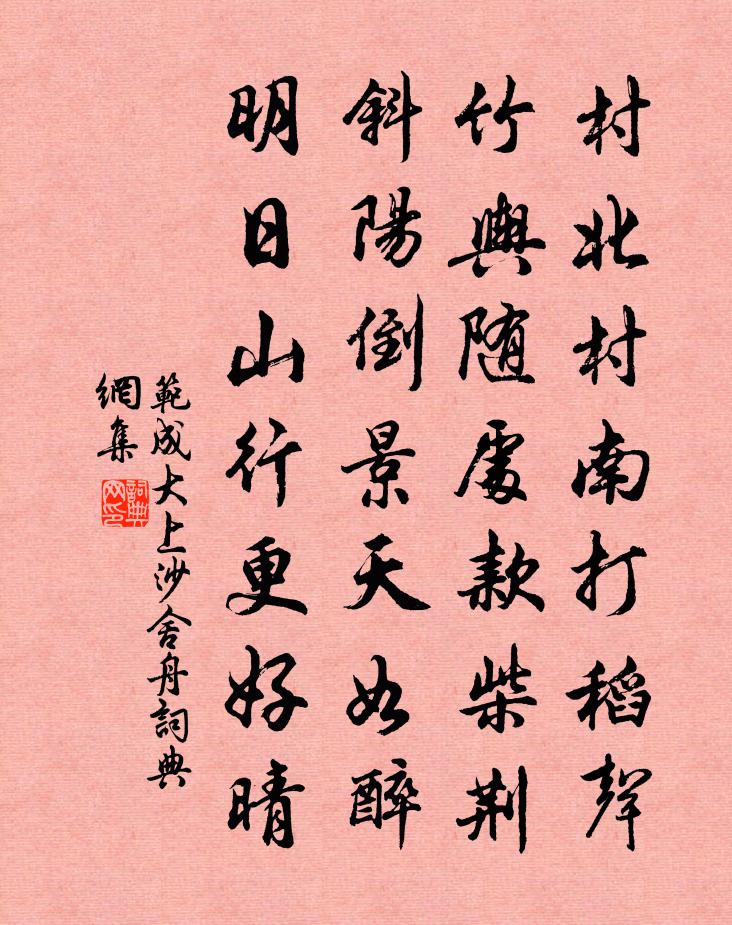 村北村南打稻聲
竹輿随處款柴荆
斜陽倒景天如醉
明日山行更好晴
範成大上沙舍舟詞典
網集
詞典
网印